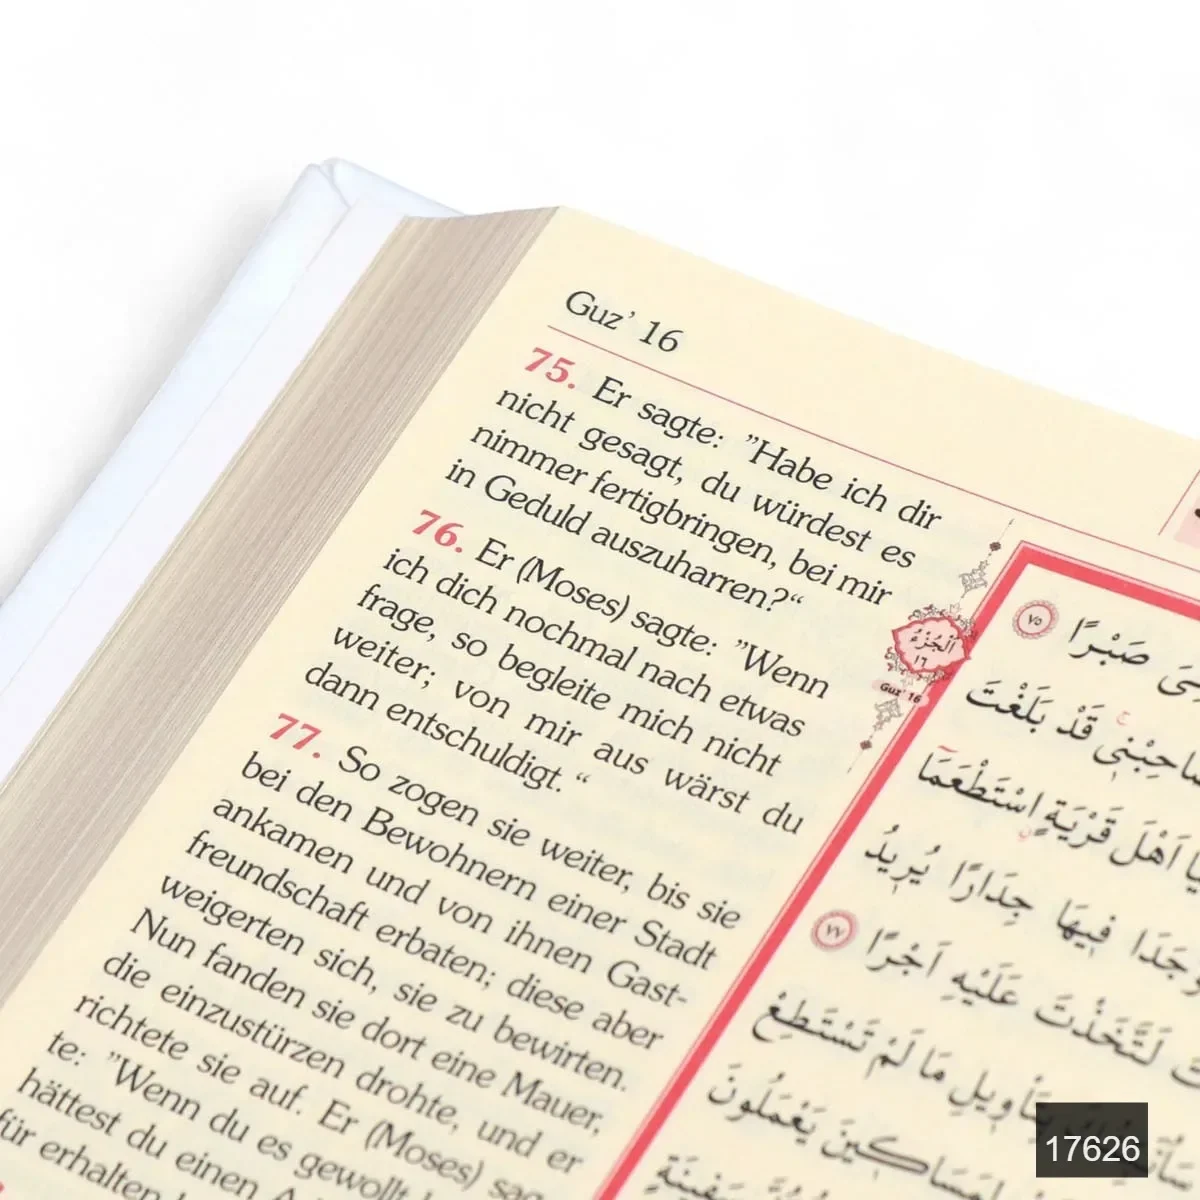 Guz' 16
75. Er sagte: ”Habe ich dir
nicht gesagt, du würdest es
nimmer fertigbringen, bei mir
in Geduld auszuharren?“
76. Er (Moses) sagte: ”Wenn
ich dich nochmal nach etwas
frage, so begleite mich nicht
weiter; von mir aus wärst du
dann entschuldigt. “
77. So zogen sie weiter, bis sie
bei den Bewohnern einer Stadt
ankamen und von ihnen Gast-
freundschaft erbaten; diese aber
weigerten sich, sie zu bewirten.
Nun fanden sie dort eine Mauer,
die einzustürzen drohte, und er
richtete sie auf. Er (Moses) sag
te: ”Wenn du es gewollt
hättest du einen
für erhalten
اَلْجُزْءُ
١٦
Guz' 16
صَبْرًا ٧٥
قَدْ بَلَغْتَ
اَهْلَ قَرْيَةٍ اسْتَطْعَمَا
فِيهَا جِدَارًا يُرِيدُ
لَتَّخَذْتَ عَلَيْهِ اَجْرًا ٧٧
مَا لَمْ تَسْتَطِعْ
يَعْمَلُونَ
17626